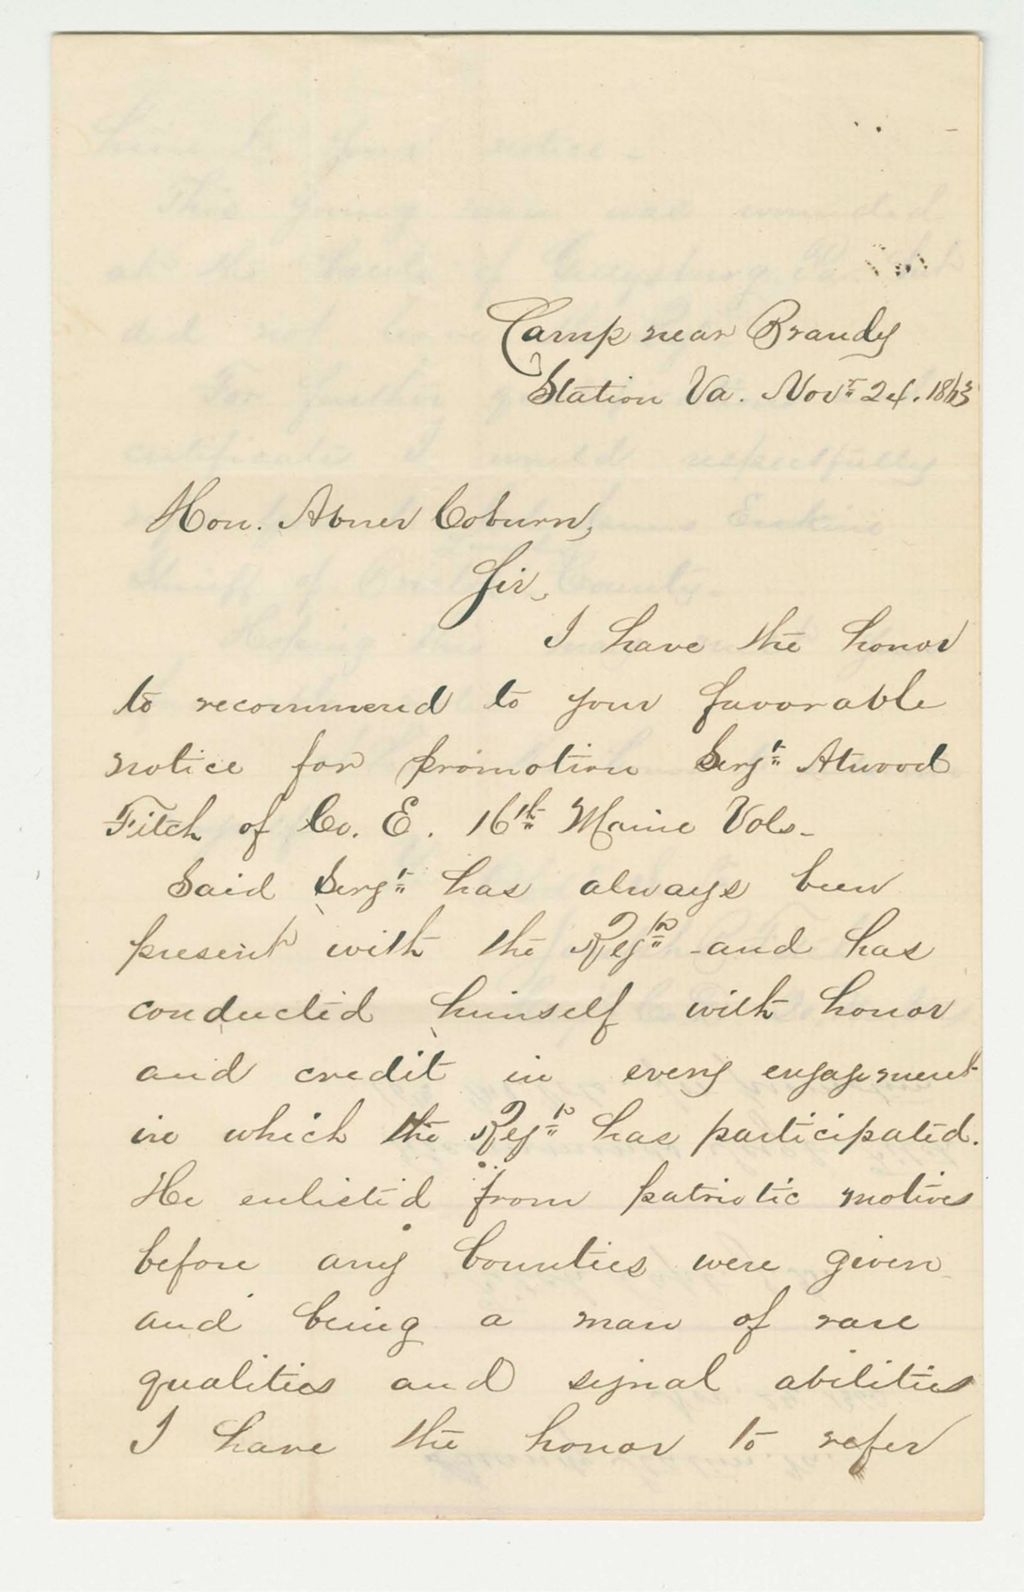 Camp near Brandy
Station Va. Novr 24. 1863
Hon. Abner Coburn,
Sir,
I have the honor
to recommend to your favorable
notice for promotion Sergt Atwood
Fitch of Co. E. 16th Maine Vols.
Said Sergt has always been
present with the Regt and has
conducted himself with honor
and credit in every engagement
in which the Regt has participated.
He enlisted from patriotic motives
before any bounties were given
and being a man of rare
qualities and signal abilities
I have the honor to refer